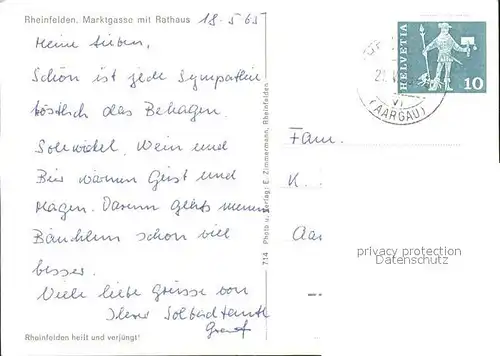 Rheinfelden. Marktgasse mit Rathaus
18.5.65
Meine Lieben,
Schön ist jede Sympathie
köstlich das Behagen.
Solewickel, Wein und
Bier wärmen Geist und
Magen. Darum geht's meinem
Bäuchlein schon viel
besser.
Viele liebe Grüsse von
Ihrer Solbadtante
Rheinfelden heilt und verjüngt!
714 Photo u. Verlag: E. Zimmermann, Rheinfelden
HELVETIA
10
(AARGAU)
Fam.
K.
Aar
privacy protection
Datenschutz